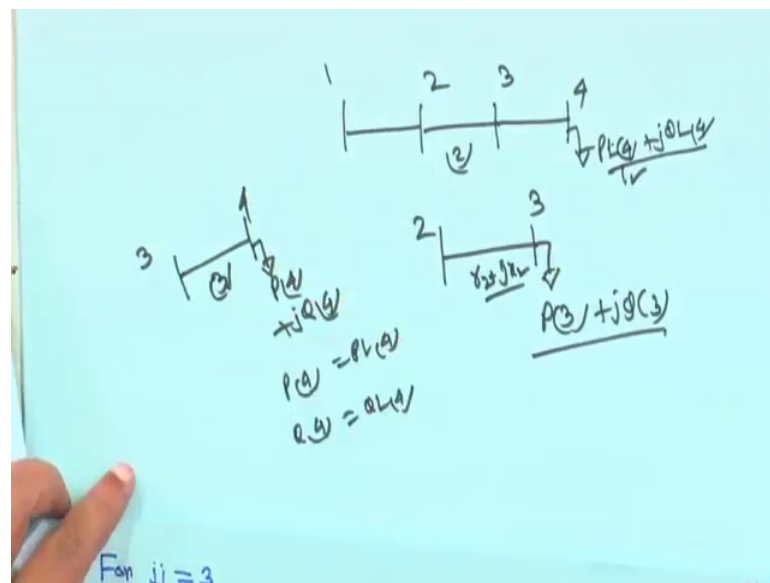 1 2 3 4
(2)
PL(4) + jQL(4)
3 4
(3)
P(4)
+jQ(4)
P(4) = PL(4)
Q(4) = QL(4)
2 3
r2+jx2
P(3) + jQ(3)
For jj = 3